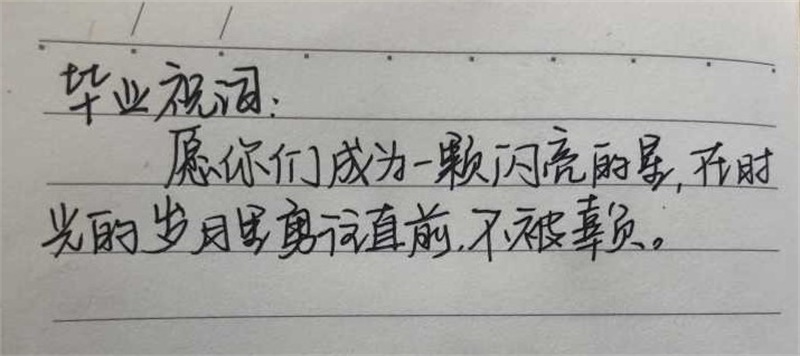 毕业祝词:
愿你们成为一颗闪亮的星,在时
光的岁月里勇往直前,不被辜负。